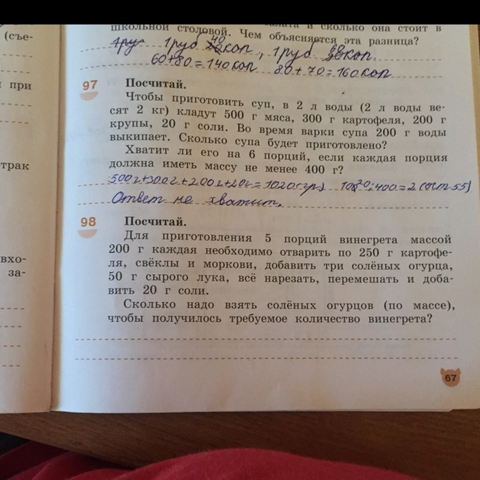 (съе-
при
трак
вхо-
за-
школьной столовой. Чем объясняется эта разница?
1 руб коп, 1 руб коп.
60+80=140коп 80+70=160коп
97
Посчитай.
Чтобы приготовить суп, в 2 л воды (2 л воды ве-
сят 2 кг) кладут 500 г мяса, 300 г картофеля, 200 г
крупы, 20 г соли. Во время варки супа 200 г воды
выкипает. Сколько супа будет приготовлено?
Хватит ли его на 6 порций, если каждая порция
должна иметь массу не менее 400 г?
500г+300г+200г+20г=1020гр. 1020:400=2 (ост 55)
Ответ не хватит.
98
Посчитай.
Для приготовления 5 порций винегрета массой
200 г каждая необходимо отварить по 250 г картофе-
ля, свёклы и моркови, добавить три солёных огурца,
50 г сырого лука, всё нарезать, перемешать и доба-
вить 20 г соли.
Сколько надо взять солёных огурцов (по массе),
чтобы получилось требуемое количество винегрета?
67